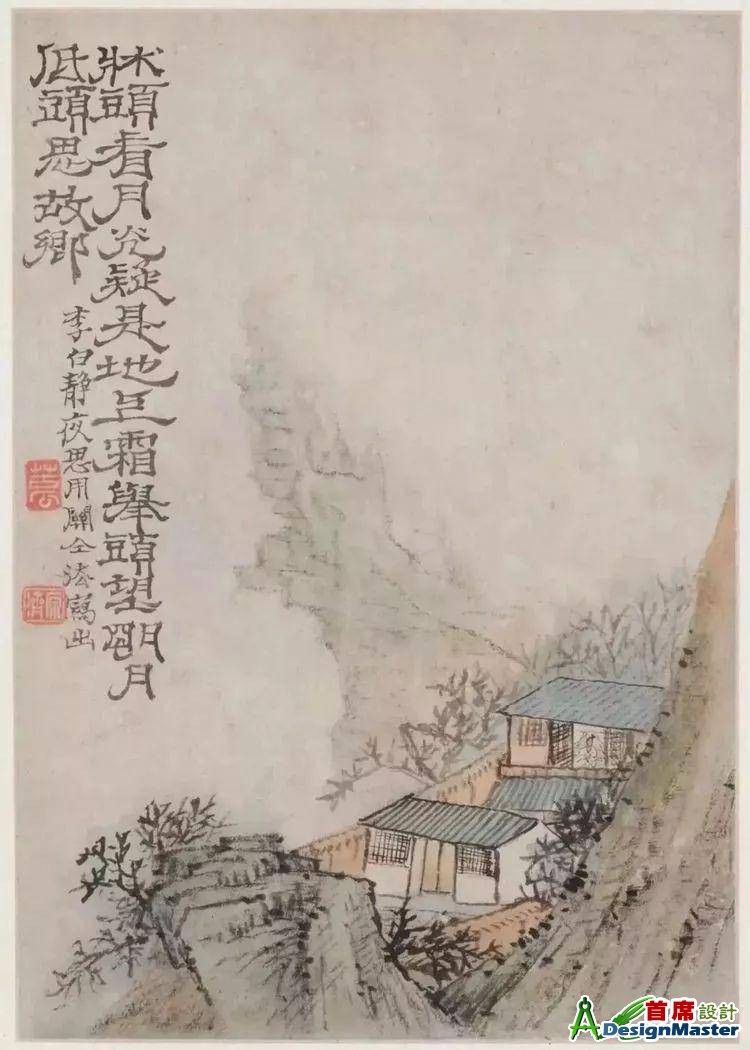 牀頭看月光疑是地上霜舉頭望朙月
低頭思故鄉
李白靜夜思用關仝法寫出
首席設計
ADesignMaster